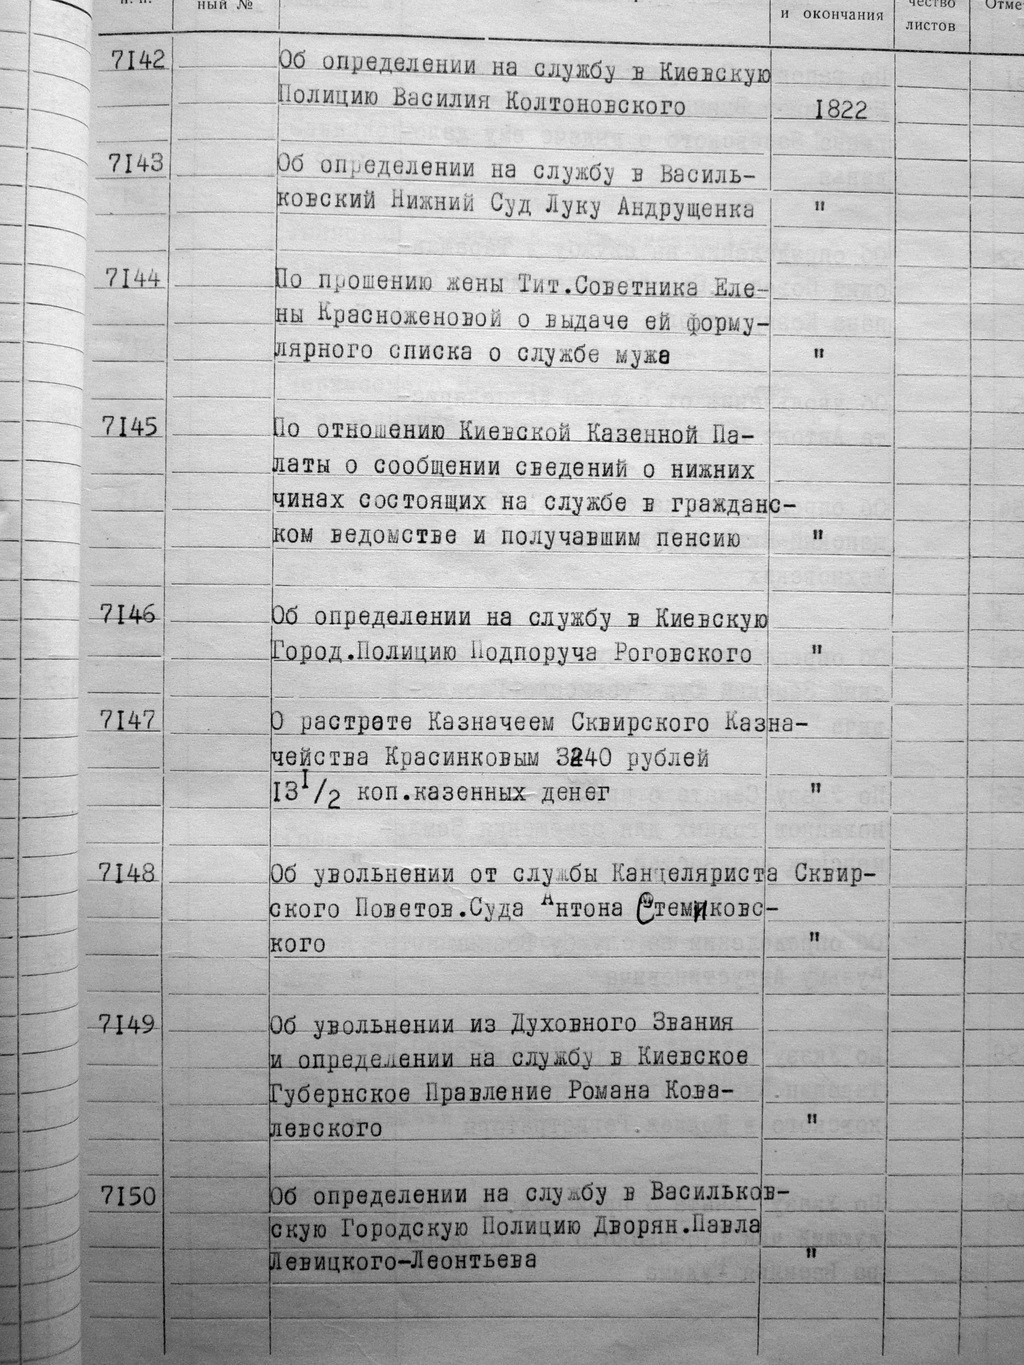 п. п.
ный №
и окончания
чество
листов
Отме
7I42
Об определении на службу в Киевскую
Полицию Василия Колтоновского
I822
7I43
Об определении на службу в Василь-
ковский Нижний Суд Луку Андрущенка
"
7I44
По прошению жены Тит.Советника Еле-
ны Красноженовой о выдаче ей форму-
лярного списка о службе мужа
"
7I45
По отношению Киевской Казенной Па-
латы о сообщении сведений о нижних
чинах состоящих на службе в гражданс-
ком ведомстве и получавшим пенсию
"
7I46
Об определении на службу в Киевскую
Город.Полицию Подпоруча Роговского
"
7I47
О растрате Казначеем Сквирского Казна-
чейства Красинковым 3240 рублей
I3 I/2 коп.казенных денег
"
7I48
Об увольнении от службы Канцеляриста Сквир-
ского Поветов.Суда Антона
кого
"
7I49
Об увольнении из Духовного Звания
и определении на службу в Киевское
Губернское Правление Романа Кова-
левского
"
7I50
Об определении на службу в Васильков-
скую Городскую Полицию Дворян.Павла
Левицкого-Леонтьева
"